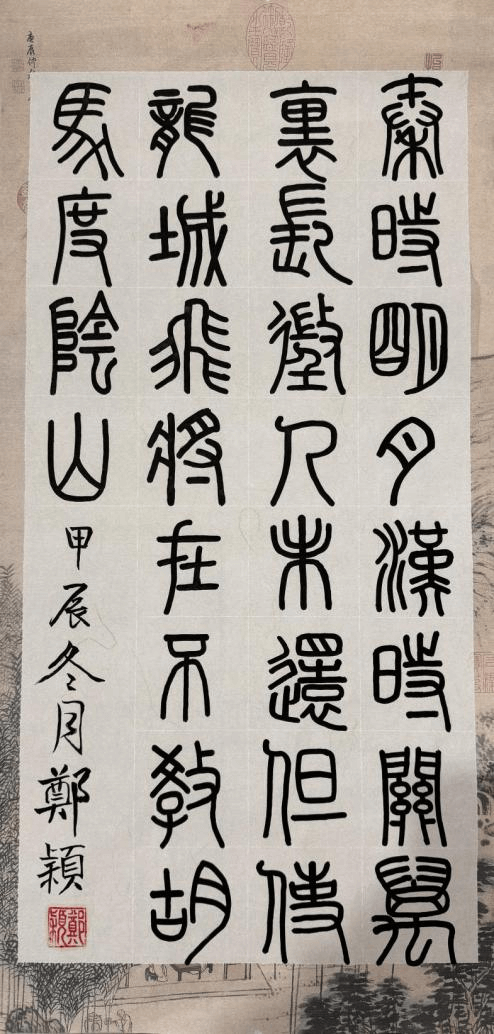 秦時明月漢時關萬
裏長徵人未還但使
龍城飛將在不教胡
馬度陰山
甲辰冬月鄭穎
鄭穎